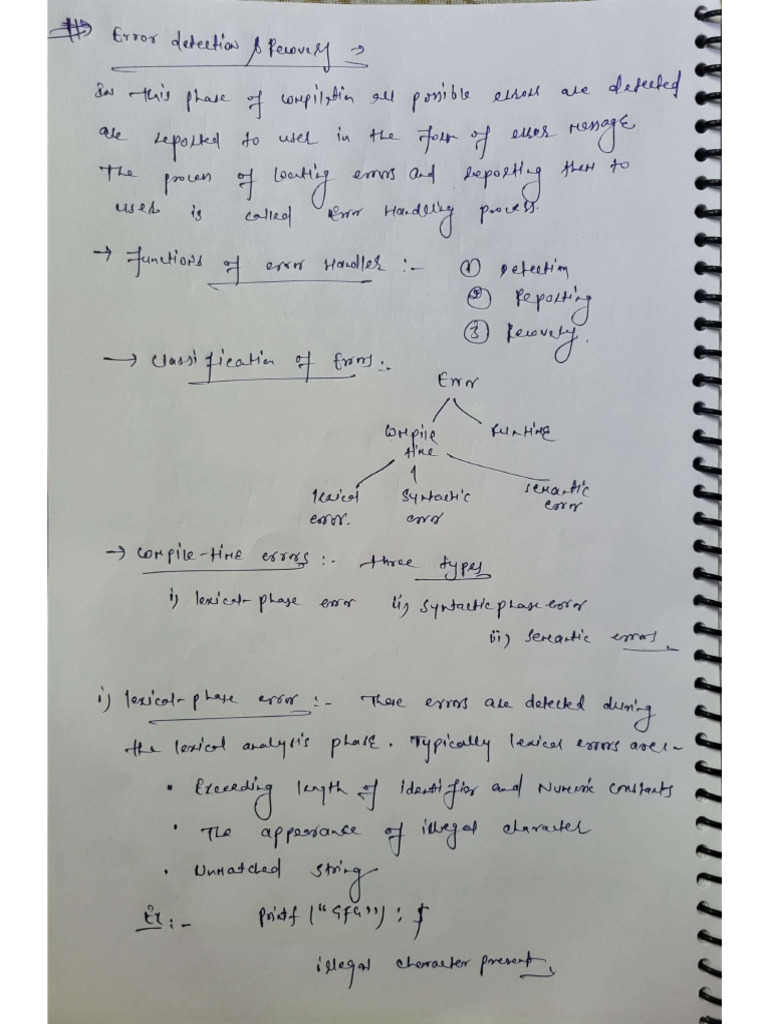 # Error detection & Recovery →
In this phase of compilation all possible errors are detected
are reported to user in the form of error message
The process of locating errors and reporting them to
user is called Error Handling process.
→ Functions of error Handler :- ① Detection
② Reporting
③ Recovery.
→ Classification of Errors:-
Error
Compile time
Runtime
lexical error.
Syntactic error
semantic error
→ Compile-time errors :- three types
i) lexical-phase error ii) Syntactic phase error
iii) Semantic errors
i) lexical-phase error :- These errors are detected during
the lexical analysis phase. Typically lexical errors are:-
• Exceeding length of identifier and Numeric constants
• The appearance of illegal character
• Unmatched string
Ex :- printf ("GFG"); $
illegal character present